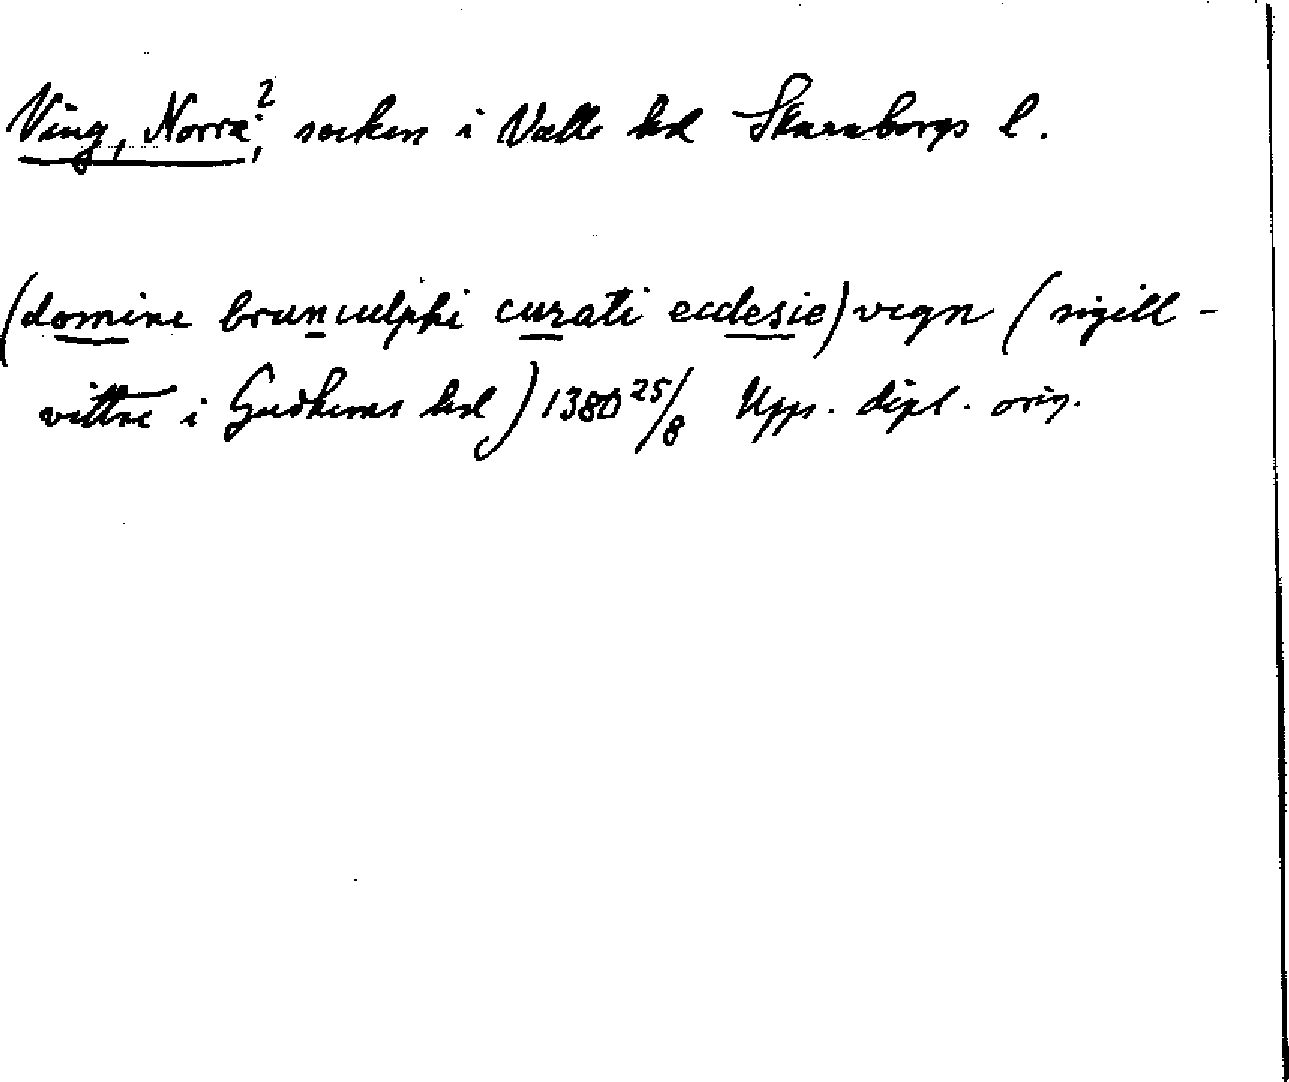 Ving, Norra?, socken i Valle hd Skaraborgs l.
(domine brunwlphi curati ecclesie) vegn (sigill-
vittne i Gudhems hd) 1380 25/8 Upps. dipl. orig.